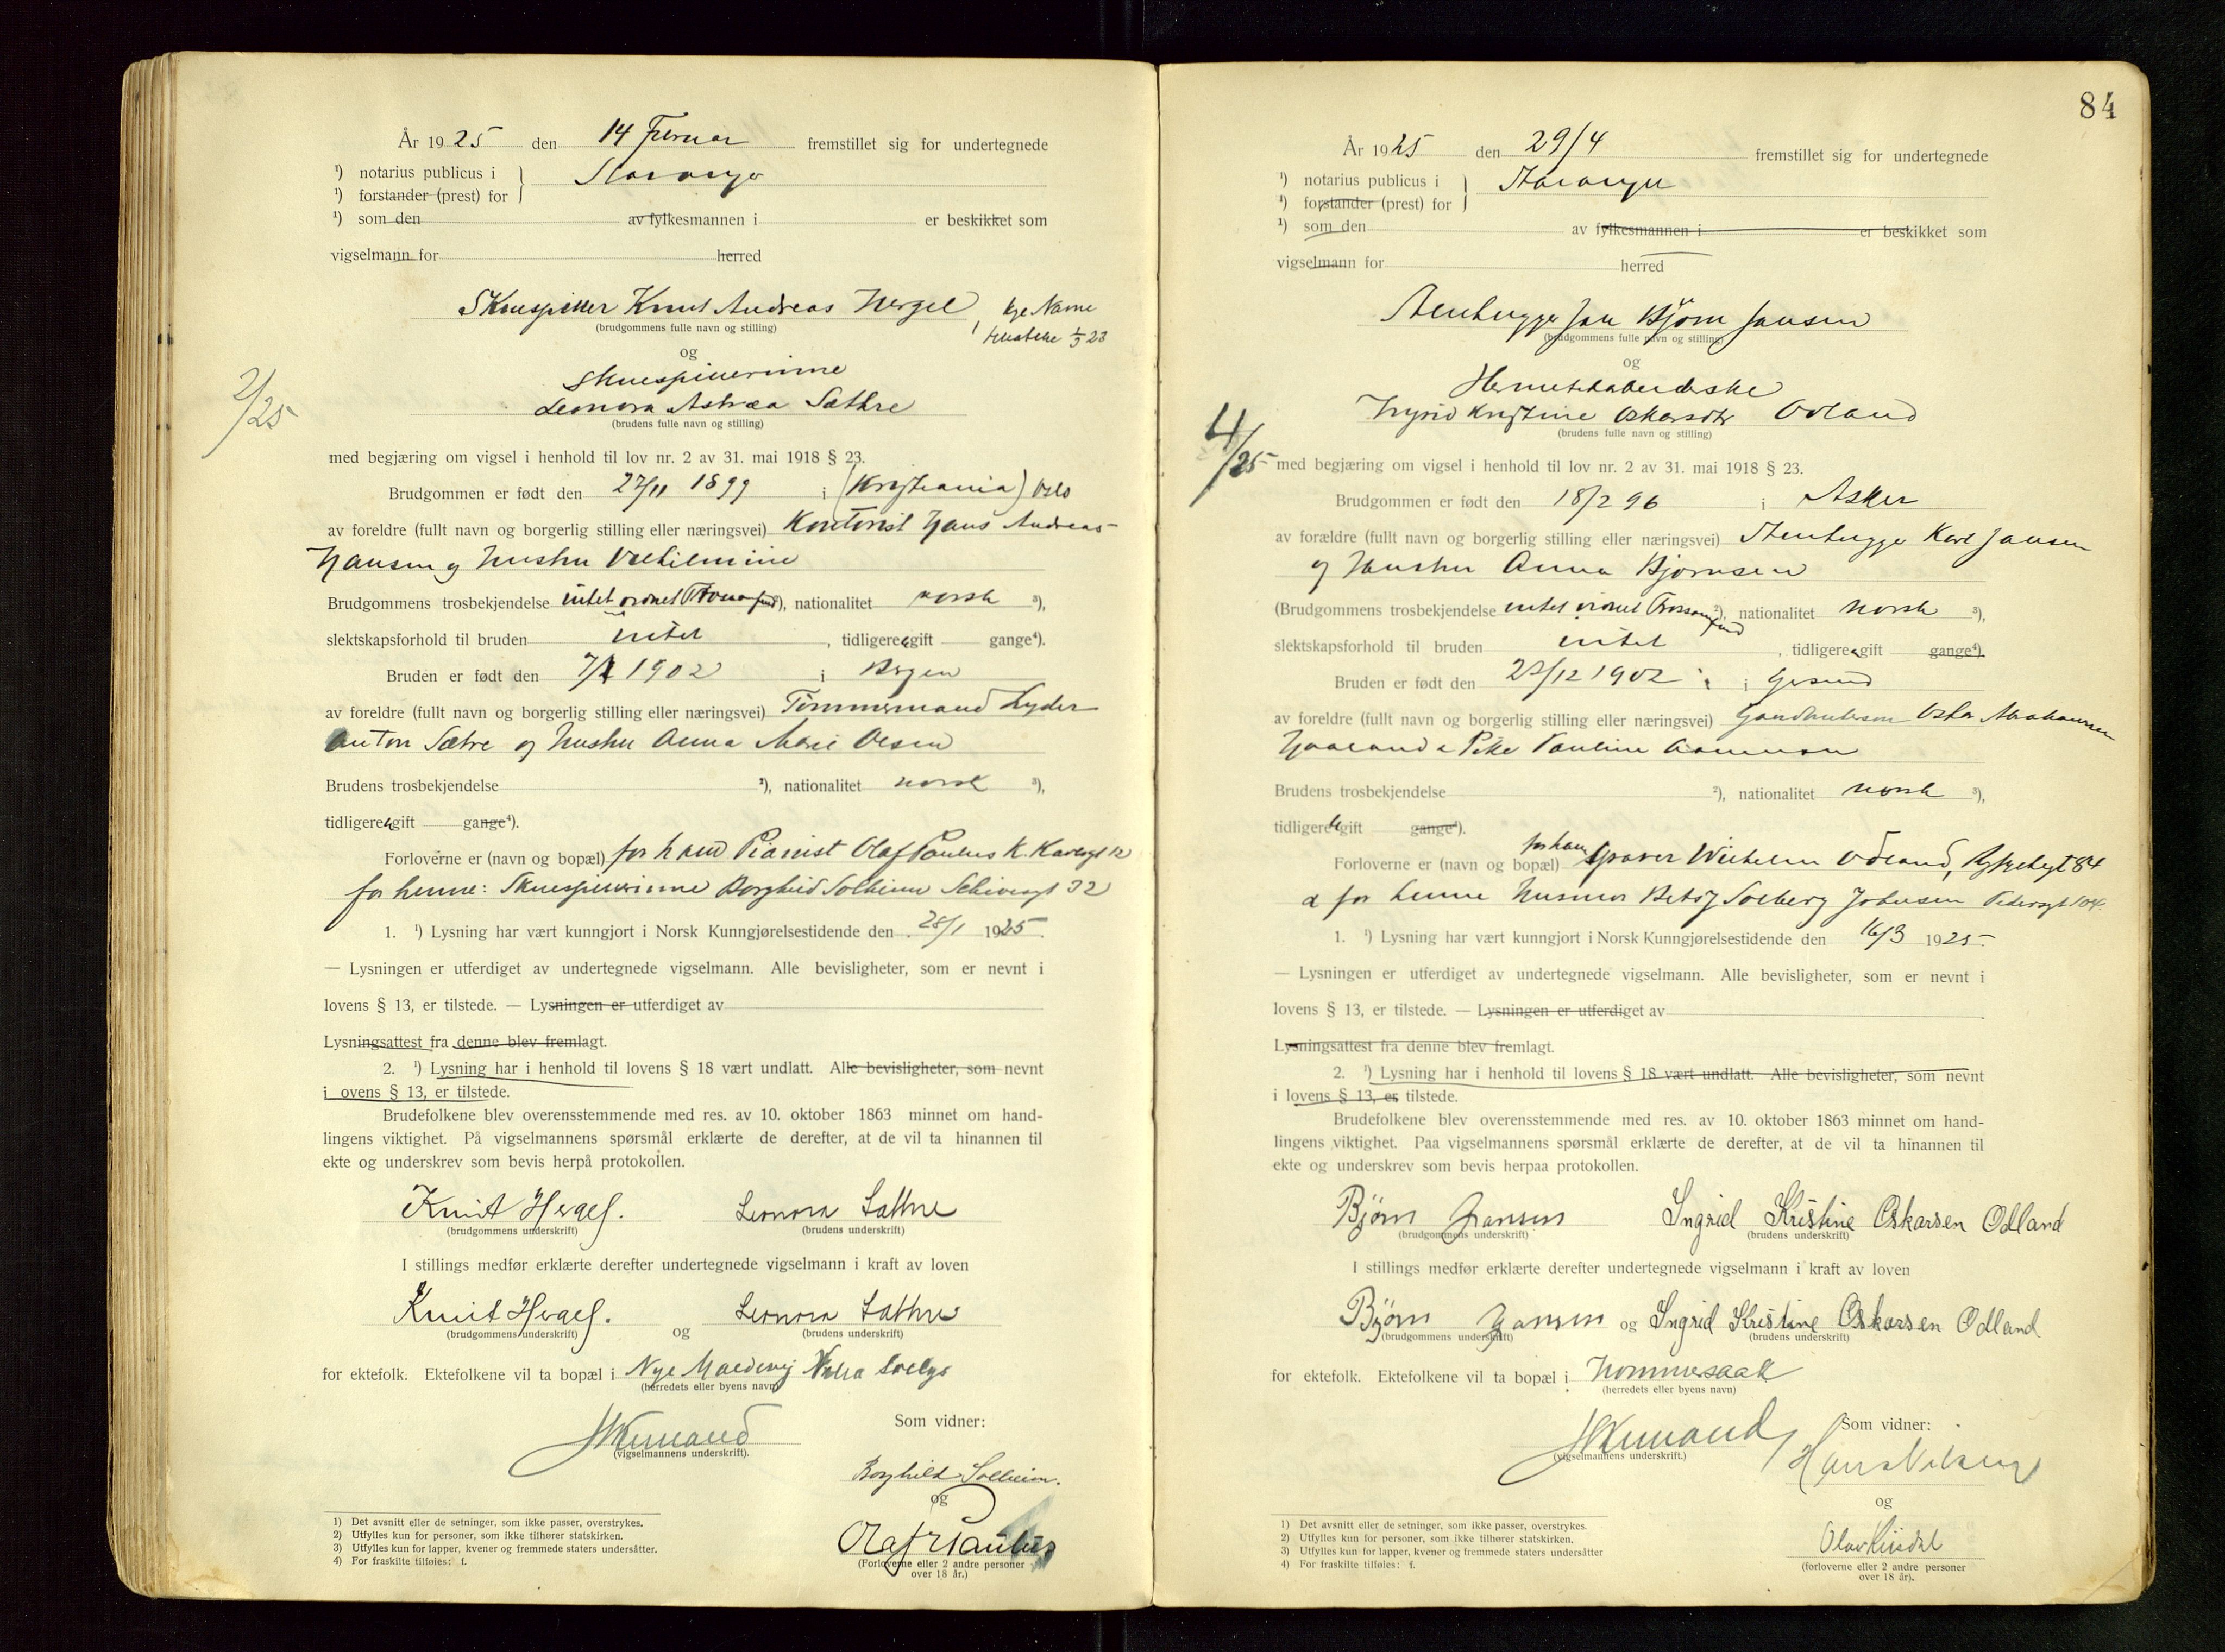 År 1925 den 14 Februar fremstillet sig for undertegnede
¹) notarius publicus i
¹) forstander (prest) for } Stavanger
¹) som den av fylkesmannen i er beskikket som
vigselmann for herred
Skuespiller Knut Andreas Hergel
(brudgommens fulle navn og stilling)
og
Skuespillerinne
Leonora Astræa Sæthre
(brudens fulle navn og stilling)
2/25
med begjæring om vigsel i henhold til lov nr. 2 av 31. mai 1918 § 23.
Brudgommen er født den 27/11 1899 i (Kristiania) Oslo
av foreldre (fullt navn og borgerlig stilling eller næringsvei) Kontorist Hans Andreas
Hansen og hustru Vilhelmine
Brudgommens trosbekjendelse intet ordnet ²), nationalitet norsk ³),
slektskapsforhold til bruden intet, tidligere gift gange⁴).
Bruden er født den 1902 i Bergen
av foreldre (fullt navn og borgerlig stilling eller næringsvei) Tømmermand Lyder
Anton Sætre og hustru Anna Marie Olsen
Brudens trosbekjendelse ²), nationalitet norsk ³),
tidligere gift gange⁴).
Forloverne er (navn og bopæl) for ham Pianist Olaf Paulus K. 12
for henne: Skuespillerinne Borghild Solheim 32
1. ¹) Lysning har vært kunngjort i Norsk Kunngjørelsestidende den 28/1 1925.
— Lysningen er utferdiget av undertegnede vigselmann. Alle bevisligheter, som er nevnt i
lovens § 13, er tilstede. — Lysningen er utferdiget av
Lysningsattest fra denne blev fremlagt.
2. ¹) Lysning har i henhold til lovens § 18 vært undlatt. Alle bevisligheter, som nevnt
i ovens § 13, er tilstede.
Brudefolkene blev overensstemmende med res. av 10. oktober 1863 minnet om hand-
lingens viktighet. På vigselmannens spørsmål erklærte de derefter, at de vil ta hinannen til
ekte og underskrev som bevis herpå protokollen.
Knut Hergel. Leonora Sæthre
(brudgommens underskrift) (brudens underskrift)
I stillings medfør erklærte derefter undertegnede vigselmann i kraft av loven
Knut Hergel. og Leonora Sæthre
(brudgommens underskrift) (brudens underskrift)
for ektefolk. Ektefolkene vil ta bopæl i Nye
(herredets eller byens navn)
(vigselmannens underskrift).
Som vidner:
Borghild Solheim.
og
Olaf Paulus
(Forloverne eller 2 andre personer
over 18 år.)
1) Det avsnitt eller de setninger, som ikke passer, overstrykes.
2) Utfylles kun for personer, som ikke tilhører statskirken.
3) Utfylles kun for lapper, kvener og fremmede staters undersåtter.
4) For fraskilte tilføies: f.
84
År 1925 den 29/4 fremstillet sig for undertegnede
¹) notarius publicus i
¹) forstander (prest) for } Stavanger
¹) som den av fylkesmannen i er beskikket som
vigselmann for herred
Stenhugger Bjørn Jansen
(brudgommens fulle navn og stilling)
og
Hermetikkarbeiderske
Ingrid Kristine Oskarsdtr Odland
(brudens fulle navn og stilling)
4/25
med begjæring om vigsel i henhold til lov nr. 2 av 31. mai 1918 § 23.
Brudgommen er født den 18/2 96 i Asker
av forældre (fullt navn og borgerlig stilling eller næringsvei) Stenhugger Karl Jansen
og Hustru Anna Bjørnsen
(Brudgommens trosbekjendelse intet ordnet Trossamfund ²), nationalitet norsk ³),
slektskapsforhold til bruden intet, tidligere gift gange⁴).
Bruden er født den 23/12 1902 i
av foreldre (fullt navn og borgerlig stilling eller næringsvei) Oskar Abrahamsen
Haaland & Pike Pauline
Brudens trosbekjendelse ²), nationalitet norsk ³),
tidligere gift gange⁴).
Forloverne er (navn og bopæl) for ham Wilhelm Odland, 84
& for henne Solberg Johnsen Pedersgt 104.
1. ¹) Lysning har vært kunngjort i Norsk Kunngjørelsestidende den 16/3 1925.
— Lysningen er utferdiget av undertegnede vigselmann. Alle bevisligheter, som er nevnt i
lovens § 13, er tilstede. — Lysningen er utferdiget av
Lysningsattest fra denne blev fremlagt.
2. ¹) Lysning har i henhold til lovens § 18 vært undlatt. Alle bevisligheter, som nevnt
i lovens § 13, er tilstede.
Brudefolkene blev overensstemmende med res. av 10. oktober 1863 minnet om hand-
lingens viktighet. Paa vigselmannens spørsmål erklærte de derefter, at de vil ta hinannen til
ekte og underskrev som bevis herpaa protokollen.
Bjørn Jansen Ingrid Kristine Oskarsen Odland
(brudgommens underskrift) (brudens underskrift)
I stillings medfør erklærte derefter undertegnede vigselmann i kraft av loven
Bjørn Jansen og Ingrid Kristine Oskarsen Odland
(brudgommens underskrift) (brudens underskrift)
for ektefolk. Ektefolkene vil ta bopæl i Hommersaak
(herredets eller byens navn)
(vigselmannens underskrift.)
Som vidner:
Hans
og
Olav
(forloverne eller 2 andre personer
over 18 år).
1) Det avsnitt eller de setninger, som ikke passer, overstrykes.
2) Utfylles kun for personer, som ikke tilhører statskirken.
3) Utfylles kun for lapper, kvener og fremmede staters undersåtter
4) For fraskilte tilføies: f.